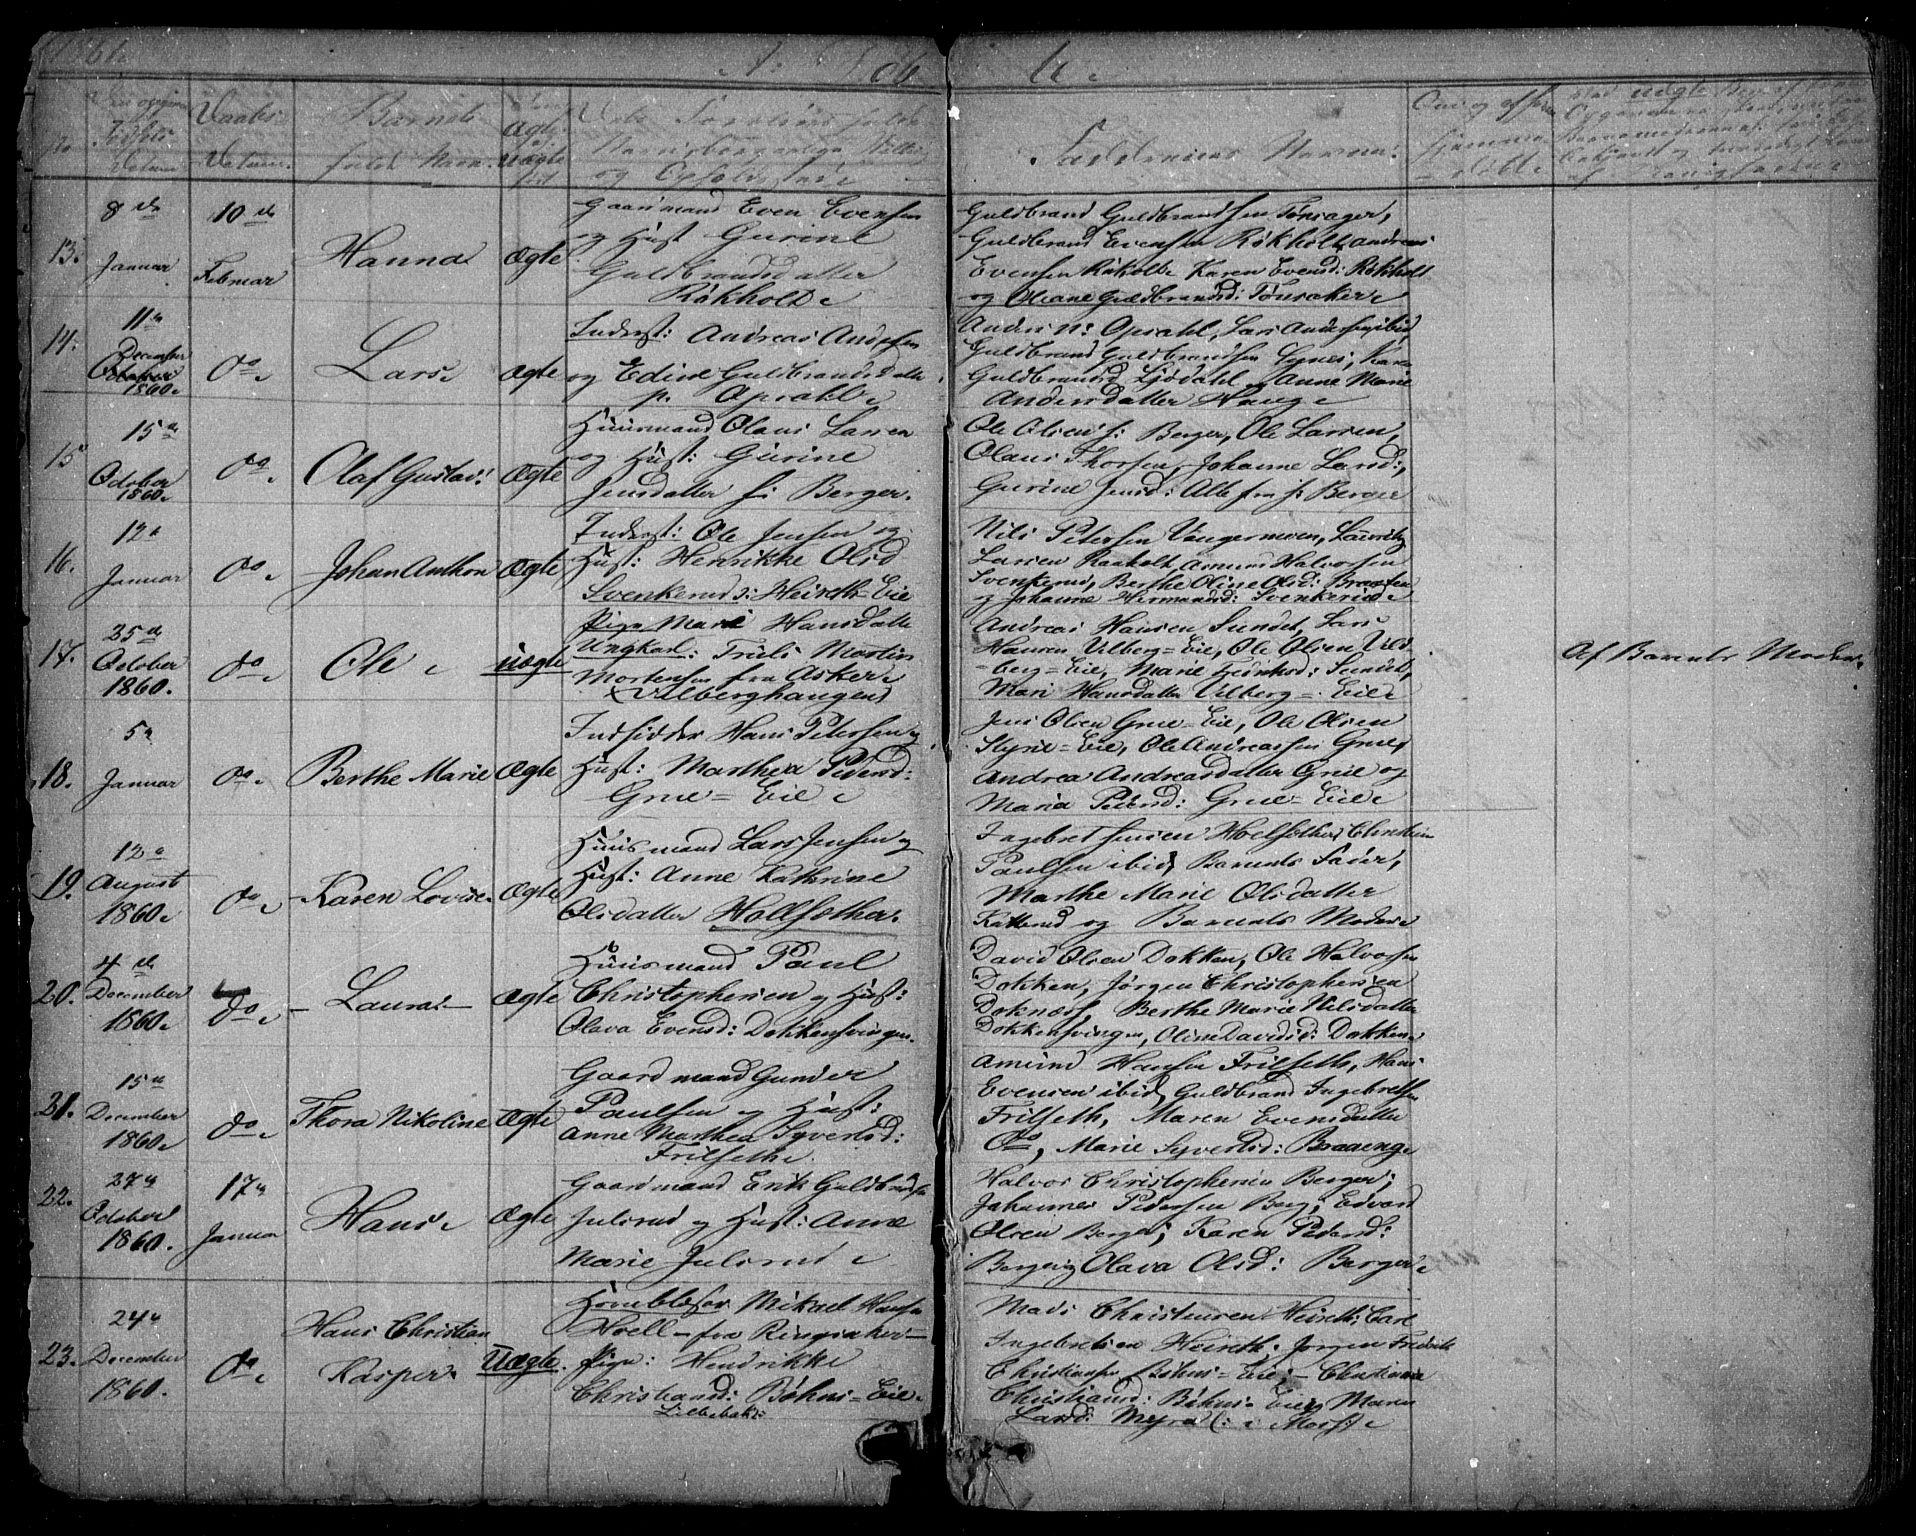 13.
8de Januar
10de Februar
Hanna
Ægte
Gaardmand Even Evensen
og Hust Gurine
Guldbrandsdatter
Røkholt
Guldbrand Guldbrandsen Tønsager,
Guldbrand Evensen Røkholt, Andreas
Evensen Røkholt Karen Evensd: Røkholt
og Oleane Guldbrandsd: Tønsaker
14.
11te December
1860
do
Lars
Ægte
Inderst: Andreas Andersen
og Edise Guldbrandsdatte
p. Opsahl
Anders N: Opsahl, Lars Andersen ibid
Guldbrand Guldbrandsen
Guldbrandsd Anne Marie
Andersdatter Hauge
15
15de October
1860
do
Olaf Gustav:
Ægte
Huusmand Olaus Larsen
og Hust: Gurine
Jensdatter f: Berger.
Ole Olsen f: Berger, Ole Larsen,
Olaus Thorsen, Johanne Larsd:,
Gurine Jensd: Alle fra f: Berger
16.
12te Januar
do
Johan Anthon
Ægte
Inderst: Ole Jensen og
Hust: Henrikke Olsd
Svenkerud: Heireth-Eie
Nils Petersen Vangermoen, Lauritz
Larsen Raaholt Amund Halvorsen
Svenkerud, Berthe Oline Olsd: Braaten
og Johanne Hermansd: Svenkerud
17.
25de October
1860.
do
Ole
Uægte
Pige Mari Hansdatte
Ungkarl: Truls Martin
Mortensen fra Asker
(Vilberghaugen)
Andreas Hansen Sundet, Lars
Hansen Vilberg=Eie, Ole Olsen Vil
berg=Eie, Marie Sundet,
Mari Hansdatter Vilberg=Eie
Af Barnets Moder
18.
5te Januar
do
Berthe Marie
Ægte
Indsidder Hans Petersen og
Hust: Marthea Pedersd:
Grue=Eie
Jens Olsen Grue=Eie, Ole Olsen
Styrie=Eie, Ole Andreassen Grue,
Andrea Andreasdatter Grue og
Maria Pedersd: Grue=Eie
19.
12te August
1860
do
Karen Lovise
Ægte
Huusmand Lars Jensen og
Hust: Anne Kathrine
Olsdatter Hollsæther
Ingebret Jensen Hoelsæther Christian
Paulsen ibid, Barnets Fader,
Marthe Marie Olsdatter
Katterud og Barnets Moder
20.
4de December
1860
do
Laura
Ægte
Huusmand Paul
Christophersen og Hust:
Olava Evensd: Dokkensvingen
David Olsen Dokken, Ole Halvorsen
Dokken, Jørgen Christophersen
Doknæs, Berthe Marie Nilsdatter
Dokkensvingen, Oline Davidsd: Dokken
21.
15de December
1860
do
Thora Nikoline
Ægte
Gaardmand Gunder
Paulsen og Hust:
Anne Marthea Syvertsd:
Frilseth
Amund Hansen Frilseth, Hans
Evensen ibid, Guldbrand Ingebretsen
Frilseth, Maren Evensdatter
do, Marie Syvertsd: Braaeng
22.
27de October
1860.
17de Januar
Hans
Ægte
Gaardmand Erik Guldbrandsen
Julsrud og Hust: Anne
Marie Julsrud
Halvor Christophersen Berger;
Johannes Pedersen Berg; Edvard
Olsen Berger; Karen Pedersd:
Berger og Olava Olsd: Berger
23.
24de December
1860.
do
Hans Christian
Kasper
Uægte.
Hornblæser Mikael Hansen
Hoell - fra Ringsaker
Pige: Hendrikke
Christiansd: Bøhns=Eie
Mads Christensen Heireth: Carl
Ingebretsen Heireth; Jørgen Fredrik
Christiansen Bøhns=Eie; Christiane
Christiansd: Bøhns Eie, Maren
Larsd: Myra